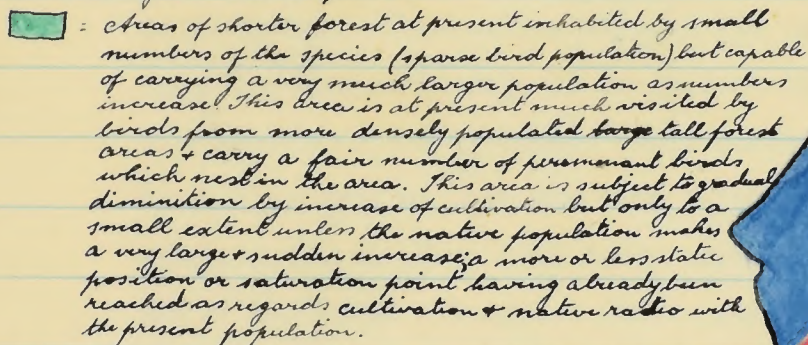 = Areas of shorter forest at present inhabited by small
numbers of the species (sparse bird population) but capable
of carrying a very much larger population as numbers
increase. This area is at present much visited by
birds from more densely populated large tall forest
areas + carry a fair number of peremenant birds
which nest in the area. This area is subject to gradual
diminition by increase of cultivation but only to a
small extent unless the native population makes
a very large + sudden increase; a more or less static
position or saturation point having already been
reached as regards cultivation + native radio with
the present population.